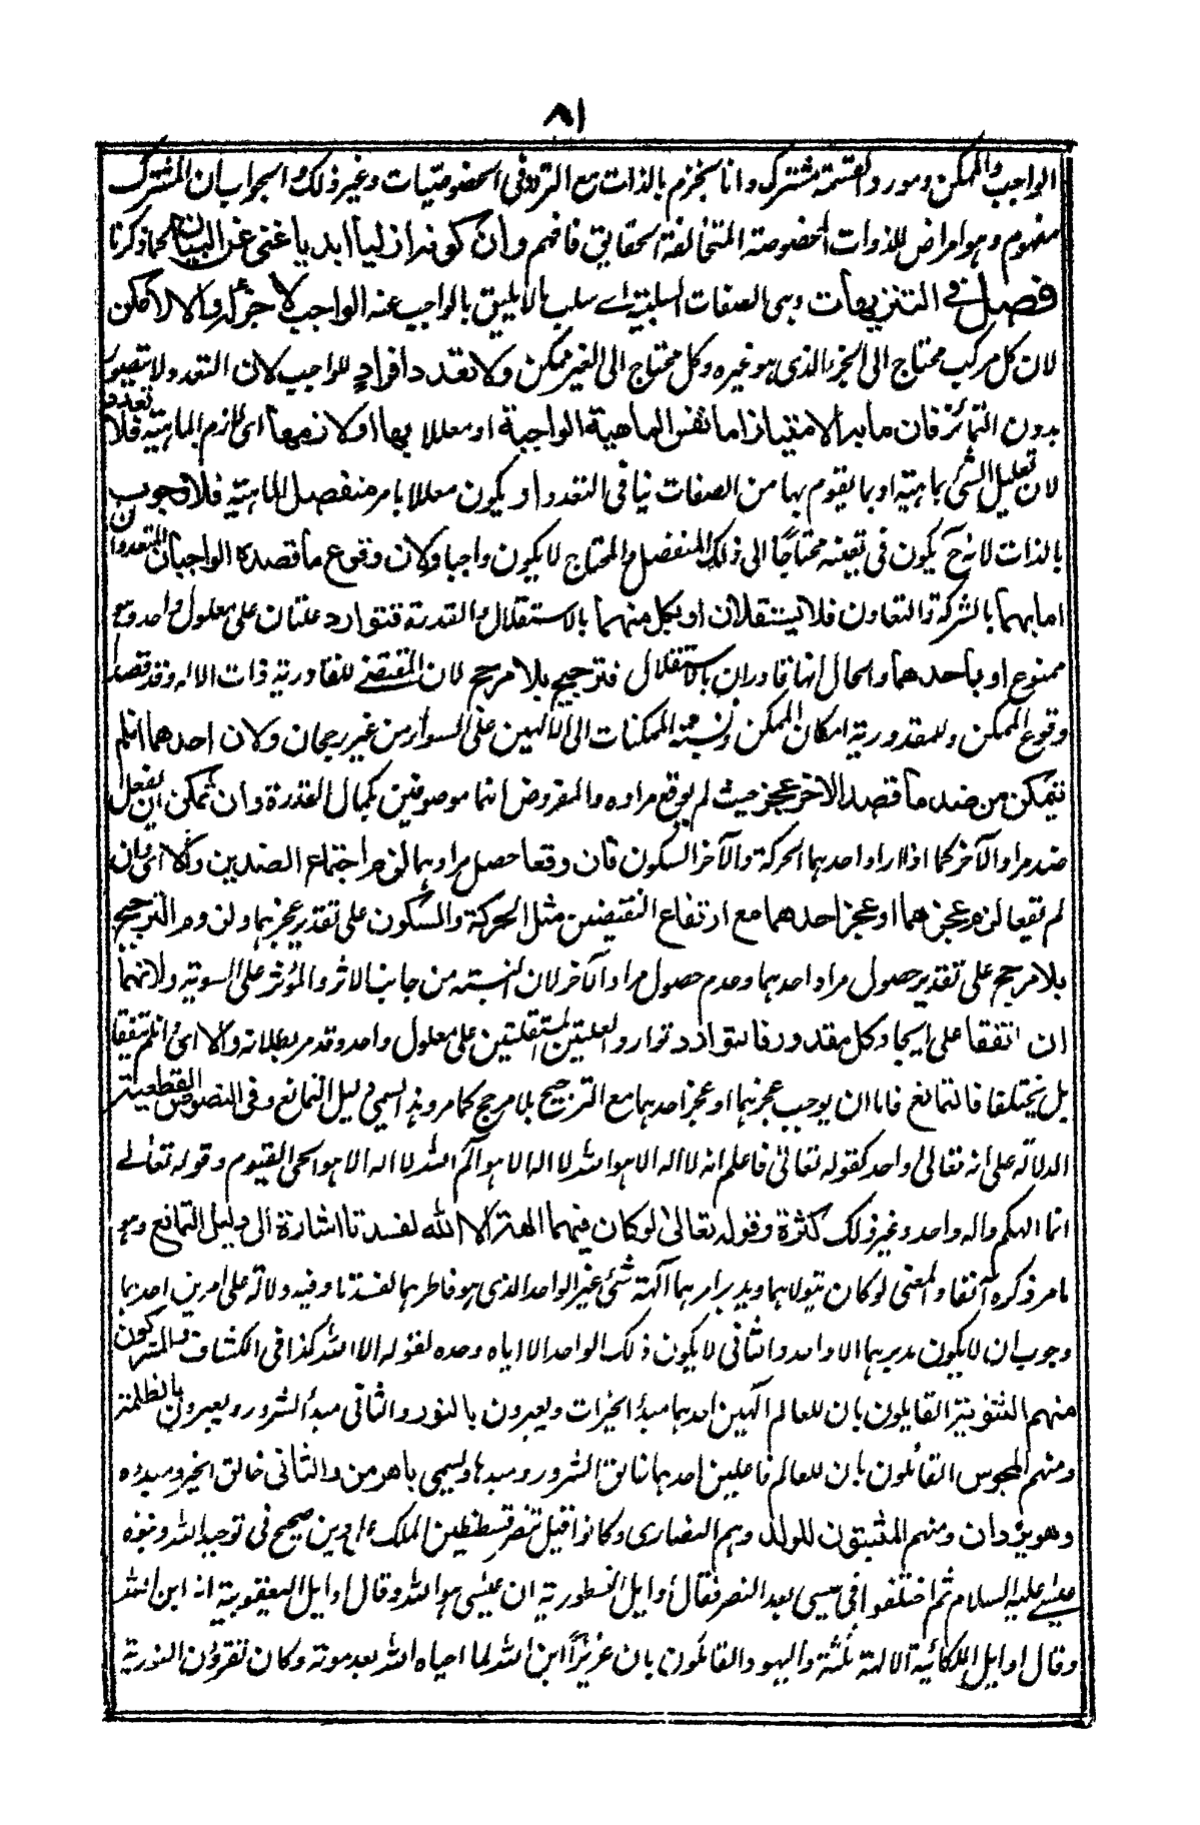 ٨١
الواجب والممكن ومورد القسمة مشترك وانا نجزم بالذات مع التردد فى الخصوصيات وغير ذلك والجواب ان المشترك
مفهوم وهو امراض للذوات المخصوصة المتخالفة الحقايق فافهم وان كونه ازليا ابديا غنى عن البيان لما ذكرنا
فصل فى التنزيهات وهى الصفات السلبية اى سلب ما لا يليق بالواجب عنه الواجب لا جزء له والا لا مكن
لان كل مركب محتاج الى الجزء الذى هو غيره وكل محتاج الى الغير ممكن ولا تعدد افراد للواجب لان التعدد لا يتصور
بدون التمائز فان ما به الامتياز اما نفس الماهية الواجبة او معللا بها او لازمها اى لازم الماهية فلا تعدد
لان تعليل الشى بماهيته او بما يقوم بها من الصفات ينافى التعدد او يكون معللا بامر منفصل الماهية فلا وجوب
بالذات لانه ح يكون فى تعينه محتاجا الى ذلك المنفصل والمحتاج لا يكون واجبا ولان وقوع ما قصده الواجبان المتعددان
اما بهما بالشركة والتعاون فلا يستقلان او بكل منهما بالاستقلال والقدرة فتوارد علتان على معلول واحد وهو
ممنوع او باحدهما والحال انهما قادران بالاستقلال فترجيح بلا مرجح لان المقتضى للقادرية ذات الاله وقد قصدا
وقوع الممكن وللمقدورية امكان الممكن ونسبة الممكنات الى الالهين على السواء من غير رجحان ولان احدهما ان لم
يتمكن من ضد ما قصد الاخر عجز حيث لم يوقع مراده والمفروض انهما موصوفين بكمال القدرة وان تمكن ان يفعل
ضد مراد الآخر كما اذا اراد احدهما الحركة والآخر السكون فان وقعا حصل مرادهما لزم اجتماع الضدين والا اى بان
لم يقعا لزم عجزهما او عجز احدهما مع ارتفاع النقيضين مثل الحركة والسكون على تقدير عجزهما ولزوم الترجيح
بلا مرجح على تقدير حصول مراد احدهما وعدم حصول مراد الآخر لان النسبة من جانب الاثر والمؤثر على السوية ولانهما
ان اتفقا على ايجاد كل مقدور فالتوارد توارد العلتين المستقلتين على معلول واحد وقد مر بطلانه والا اى ان لم يتفقا
بل يختلفا فالتمانع فاما ان يوجب عجزهما او عجز احدهما مع الترجيح بلا مرجح كما مر وهذا يسمى دليل التمانع وفى النصوص القطعية
الدلالة على انه تعالى واحد كقوله تعالى فاعلم انه لا اله الا هو الله لا اله الا هو الم الله لا اله الا هو الحى القيوم وقوله تعالى
انما الهكم واله واحد وغير ذلك كثرة وقوله تعالى لو كان فيهما الهة الا الله لفسدتا اشارة الى دليل التمانع وهو
ما مر ذكره آنفا والمعنى لو كان يتولاهما ويدبر امرهما آلهة شتى غير الواحد الذى هو فاطرهما لفسدتا وفيه دلالة على امرين احدهما
وجوب ان لا يكون مدبرهما الا واحد والثانى لا يكون ذلك الواحد الا اياه وحده لقوله الا الله كذا فى الكشاف والمشركون
منهم الثنوية القايلون بان للعالم الهين احدهما مبدأ الخيرات ويعبرون بالنور والثانى مبدأ الشرور ويعبرون بالظلمة
ومنهم المجوس القائلون بان للعالم فاعلين احدهما خالق الشرور ومبدها ويسمى باهرمن والثانى خالق الخير ومبدؤه
وهو يزدان ومنهم المثبتون للولد وهم النصارى وكانوا قبل تنصر قسطنطين الملك على دين صحيح فى توحيد الله ونبوة
عيسى عليه السلام ثم اختلفوا فى عيسى بعد التنصر فقال اوايل النسطورية ان عيسى هو الله وقال اوايل اليعقوبية انه ابن الله
وقال اوايل الملكائية الالهة ثلثة واليهود القائلون بان عزيزا ابن الله لما احياه الله بعد موته وكان يقرؤن التورية